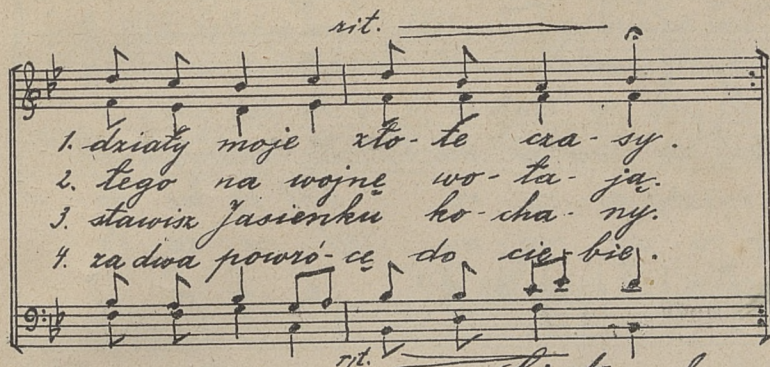 rit.
1. działy moje zło-te cza-sy.
2. tego na wojnę wo-ła-ją.
3. stawisz Jasieńku ko-cha-ny.
4. za dwa powró-cę do cie-bie.
rit.